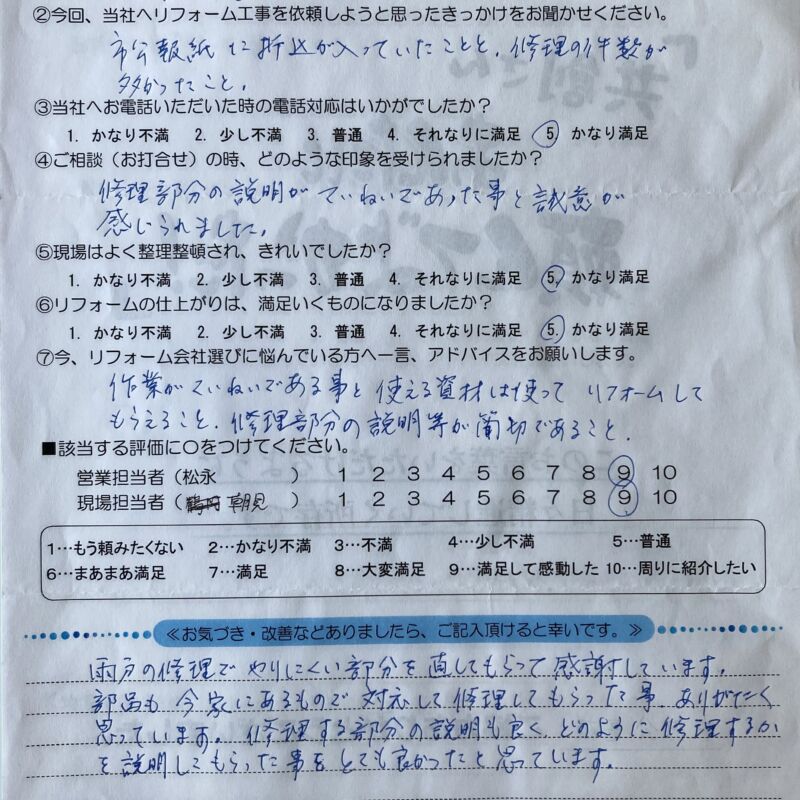 ②今回、当社へリフォーム工事を依頼しようと思ったきっかけをお聞かせください。
市公報紙に折込が入っていたことと、修理の件数が
多かったこと。
③当社へお電話いただいた時の電話対応はいかがでしたか？
1. かなり不満 2. 少し不満 3. 普通 4. それなりに満足 5. かなり満足
④ご相談（お打合せ）の時、どのような印象を受けられましたか？
修理部分の説明がていねいであった事と誠意が
感じられました。
⑤現場はよく整理整頓され、きれいでしたか？
1. かなり不満 2. 少し不満 3. 普通 4. それなりに満足 5. かなり満足
⑥リフォームの仕上がりは、満足いくものになりましたか？
1. かなり不満 2. 少し不満 3. 普通 4. それなりに満足 5. かなり満足
⑦今、リフォーム会社選びに悩んでいる方へ一言、アドバイスをお願いします。
作業がていねいである事と使える資材は使ってリフォームして
もらえること。修理部分の説明等が適切であること。
■該当する評価に〇をつけてください。
営業担当者（松永 ） 1 2 3 4 5 6 7 8 9 10
現場担当者（ 朝見 ） 1 2 3 4 5 6 7 8 9 10
1…もう頼みたくない 2…かなり不満 3…不満 4…少し不満 5…普通
6…まあまあ満足 7…満足 8…大変満足 9…満足して感動した 10…周りに紹介したい
≪お気づき・改善などありましたら、ご記入頂けると幸いです。≫
雨戸の修理でやりにくい部分を直してもらって感謝しています。
部品も今家にあるもので対応して修理してもらった事、ありがたく
思っています。修理する部分の説明も良く、どのように修理するか
を説明してもらった事をとても良かったと思っています。